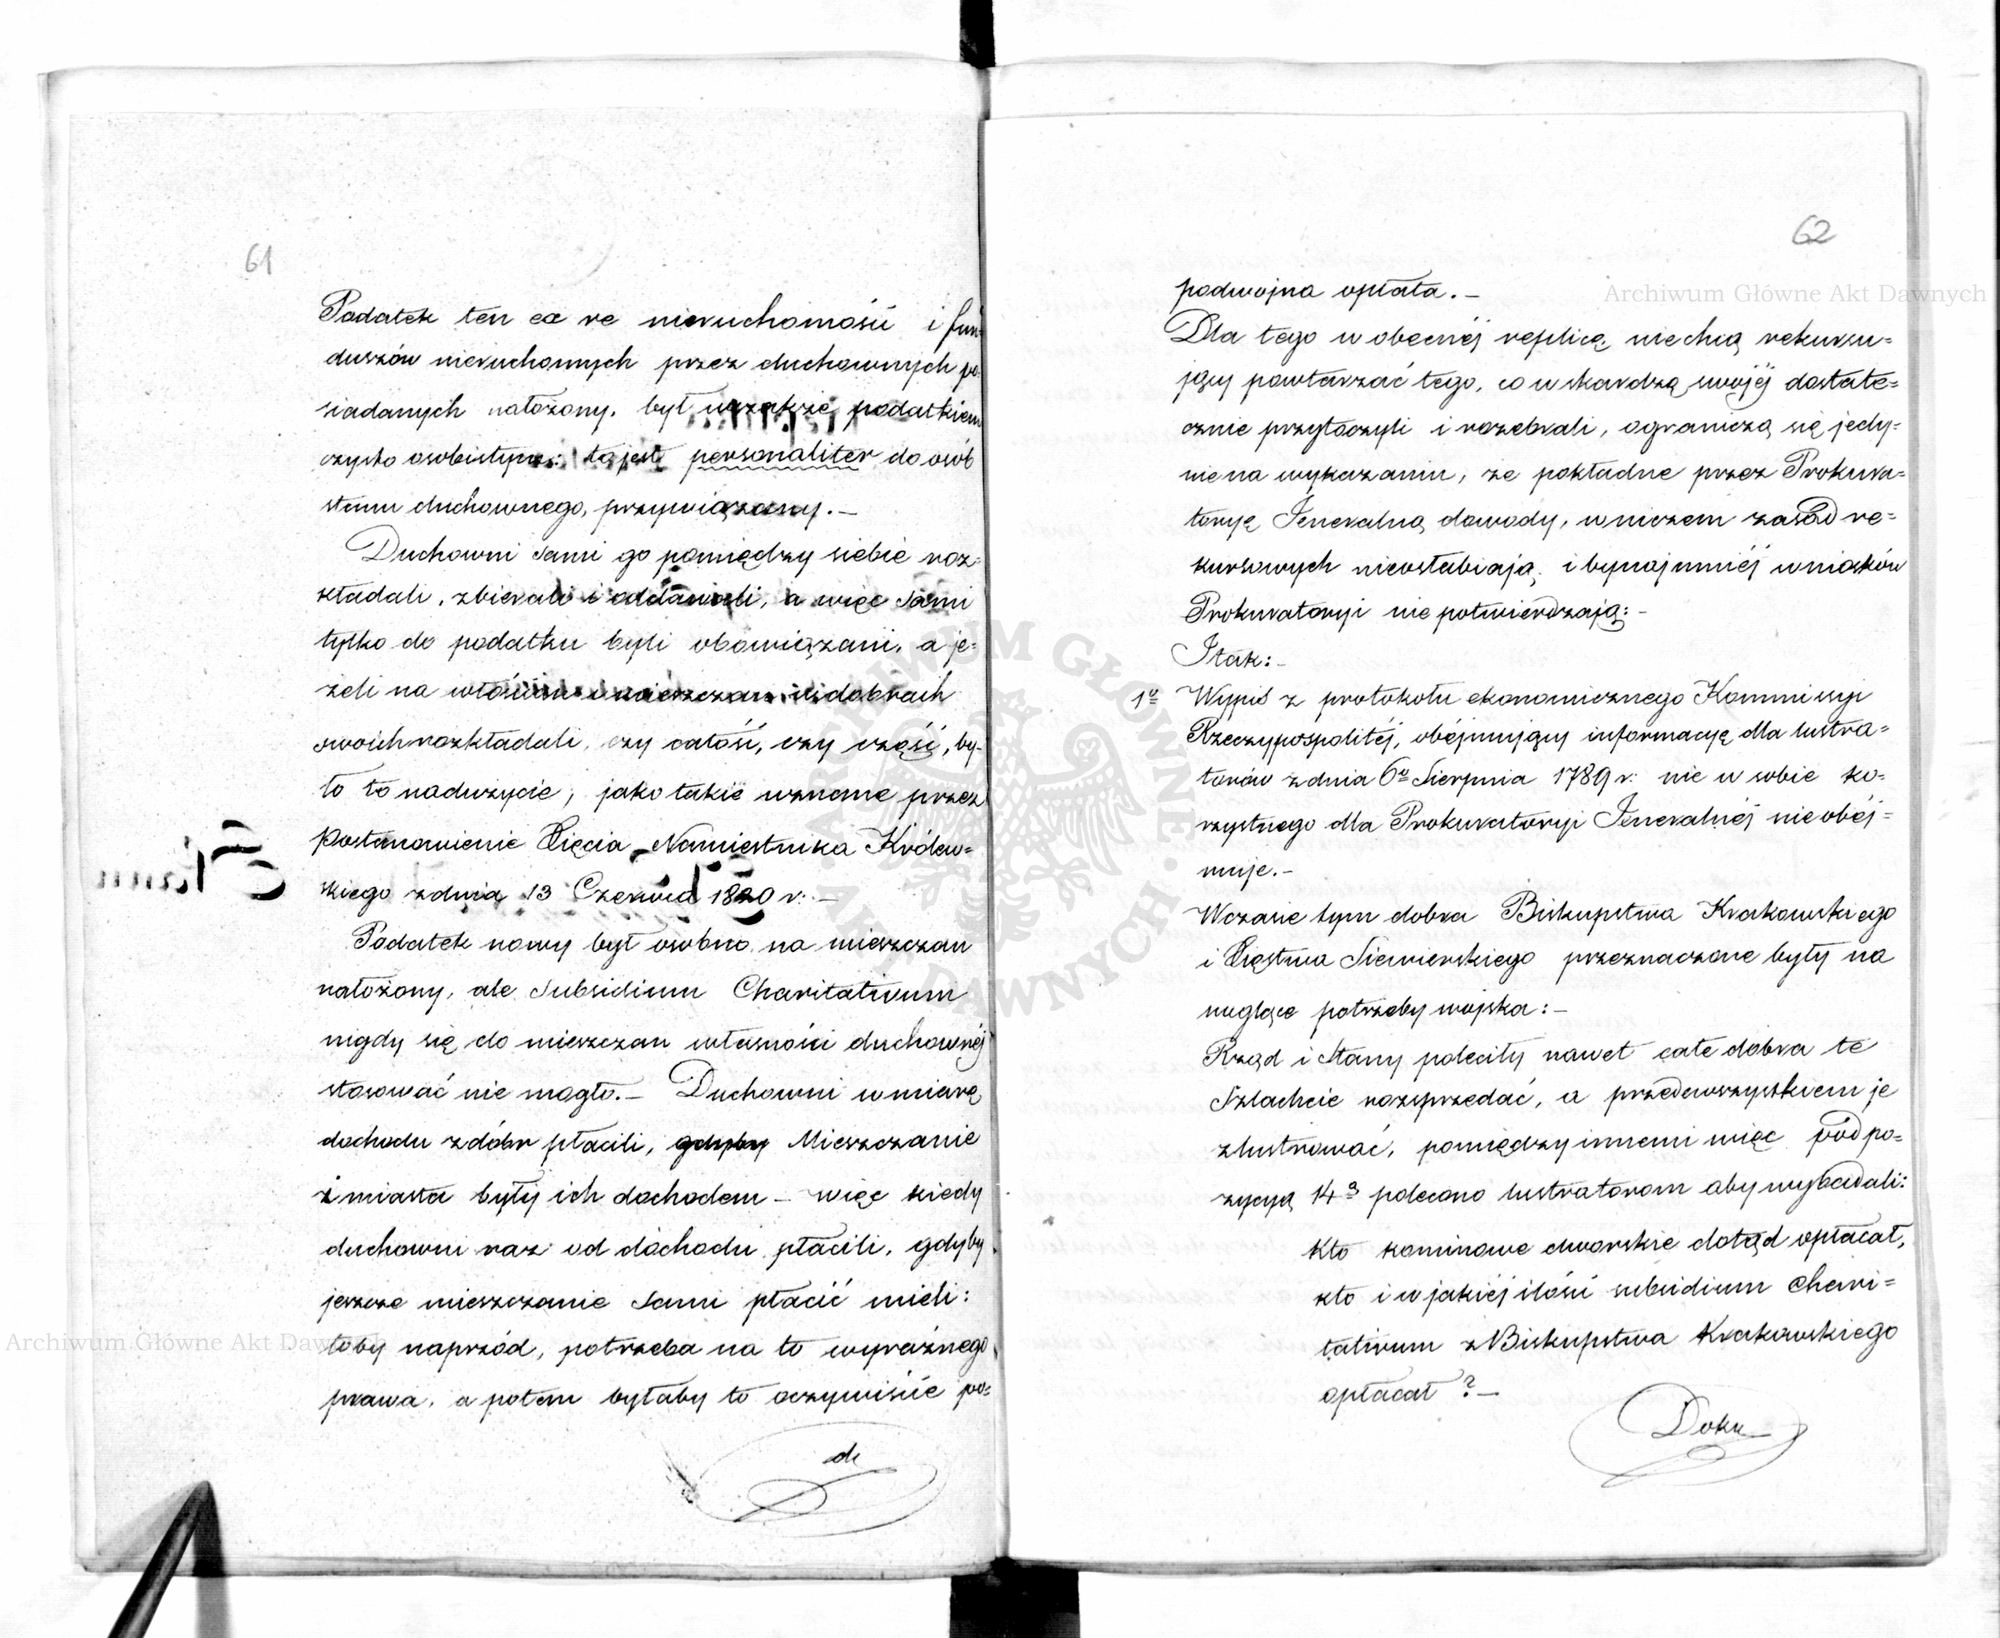 61
Podatek ten ex re nieruchomości i fun-
duszów nieruchomych przez duchownych po-
siadanych nałożony, był wszakże podatkiem
czysto osobistym: to jest personaliter do osób
stanu duchownego, przywiązany.—
Duchowni sami go pomiędzy siebie roz-
kładali, zbierali i oddawali, a więc sami
tylko do podatku byli obowiązani, a je-
żeli na włościan i mieszczan w dobrach
swoich rozkładali, czy całość, czy część, by-
ło to nadużycie, jako takie uznane przez
Postanowienie Xięcia Namiestnika Królew-
skiego z dnia 13 Czerwca 1820 r:—
Podatek nowy był osobno na mieszczan
nałożony, ale Subsidium Charitativum
nigdy się do mieszczan własności duchownéj
stosować nie mogło.— Duchowni w miarę
dochodu z dóbr płacili, Mieszczanie
i miasta były ich dochodem — więc kiedy
duchowni raz od dochodu płacili, gdyby
jeszcze mieszczanie sami płacić mieli:
toby naprzód, potrzeba na to wyraźnego
prawa, a potem byłaby to oczywiście po-
dw
62
podwojna opłata.—
Dla tego w obecnéj replicę nie chcą rekursu-
jący powtarzać tego, co w skardzą swojéj dostate-
cznie przytoczyli i rozebrali, ograniczą się jedy-
nie na wykazaniu, że pokładne przez Prokura-
toryę Jeneralną dowody, w niczem zasad re-
kursowych nieosłabiają, i bynajmniéj wniosków
Prokuratoryi nie potwierdzają:-
I tak:-
1o Wypis z protokołu ekonomicznego Kommissyi
Rzeczypospolitéj, obéjmujący informacyę dla lustra-
torów z dnia 6o Sierpnia 1789 r: nic w sobie ko-
rzystnego dla Prokuratoryi Jeneralnéj nieobéj-
muje.-
W czasie tym dobra Biskupstwa Krakowskiego
i Xięstwa Siewierskiego przeznaczone były na
naglące potrzeby wojska:-
Rząd i Stany poleciły nawet całe dobra te
Szlachcie rozsprzedać, a przedewszystkiem je
zlustrować, pomiędzy innemi więc pod po-
zycyą 14ą polecono lustratorom aby wybadali:
kto kominowe dworskie dotąd opłacał,
kto i w jakiéj ilości subsidium Chari-
tativum z Biskupstwa Krakowskiego
opłacał?—
Doku
Archiwum Główne Akt Dawnych
Archiwum Główne Akt Dawnych
ARCHIWUM GŁÓWNE AKT DAWNYCH